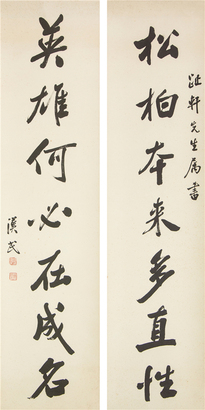 松柏本来多直性
䟆轩先生属书
英雄何必在成名
汉民